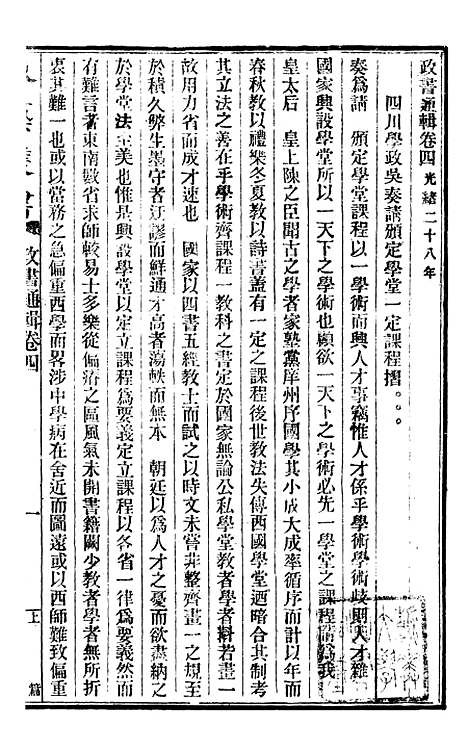 政書通輯卷四 光緒二十八年
四川學政吳奏請頒定學堂一定課程摺。。。
奏爲請 頒定學堂課程以一學術而興人才事竊惟人才係乎學術學術歧則人才雜
國家興設學堂所以一天下之學術也顧欲一天下之學術必先一學堂之課程請爲我
皇太后 皇上陳之臣聞古之學者家塾黨庠州序國學其小成大成率循序而計以年而
春秋教以禮樂冬夏教以詩書蓋有一定之課程後世教法失傳西國學堂迺暗合其制考
其立法之善在乎學術齊課程一教科之書定於國家無論公私學堂教者學者斠若畫一
故用力省而成才速也 國家以四書五經教士而試之以時文未嘗非整齊畫一之規至
於積久弊生墨守者迂謬而鮮通才高者蕩軼而無本 朝廷以爲人才之憂而欲盡納之
於學堂法至美也惟是興設學堂以定立課程爲要義定立課程以各省一律爲要義然而
有難言者東南數省求師較易士多樂從偏瘠之區風氣未開書籍闕少教者學者無所折
衷其難一也或以當務之急偏重西學而畧涉中學病在舍近而圖遠或以西師難致偏重
政書通輯卷四
一
上
篇